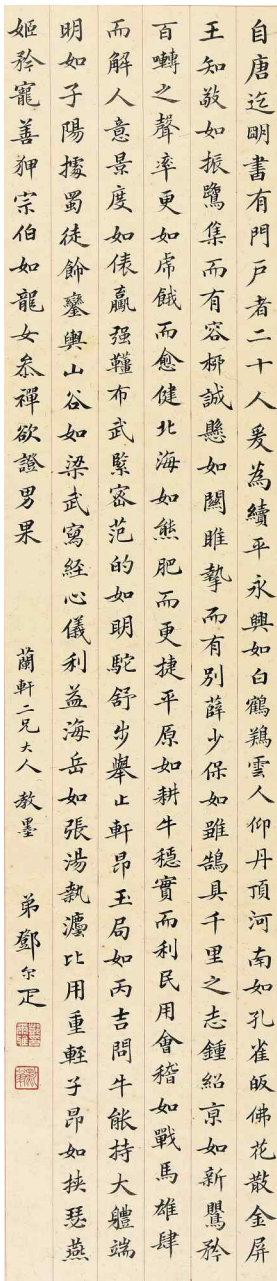 自唐迄明書有門戶者二十人爰為續平永興如白鶴翔雲人仰丹頂河南如孔雀皈佛花散金屏
王知敬如振鷺集而有容柳誠懸如關雎摯而有別薛少保如雖鵠具千里之志鍾紹京如新鸎矜
百囀之聲率更如虎餓而愈健北海如熊肥而更捷平原如耕牛穩實而利民用會稽如戰馬雄肆
而解人意景度如俵驘强鞾布武緊密范的如明駝舒步舉止軒昂玉局如丙吉問牛能持大軆端
明如子陽據蜀徒飾鑾輿山谷如梁武寫經心儀利益海岳如張湯執灋比用重輕子昂如挾瑟燕
姬矜寵善狎宗伯如龍女參禪欲證男果
蘭軒二兄大人 教墨
弟鄧尔疋